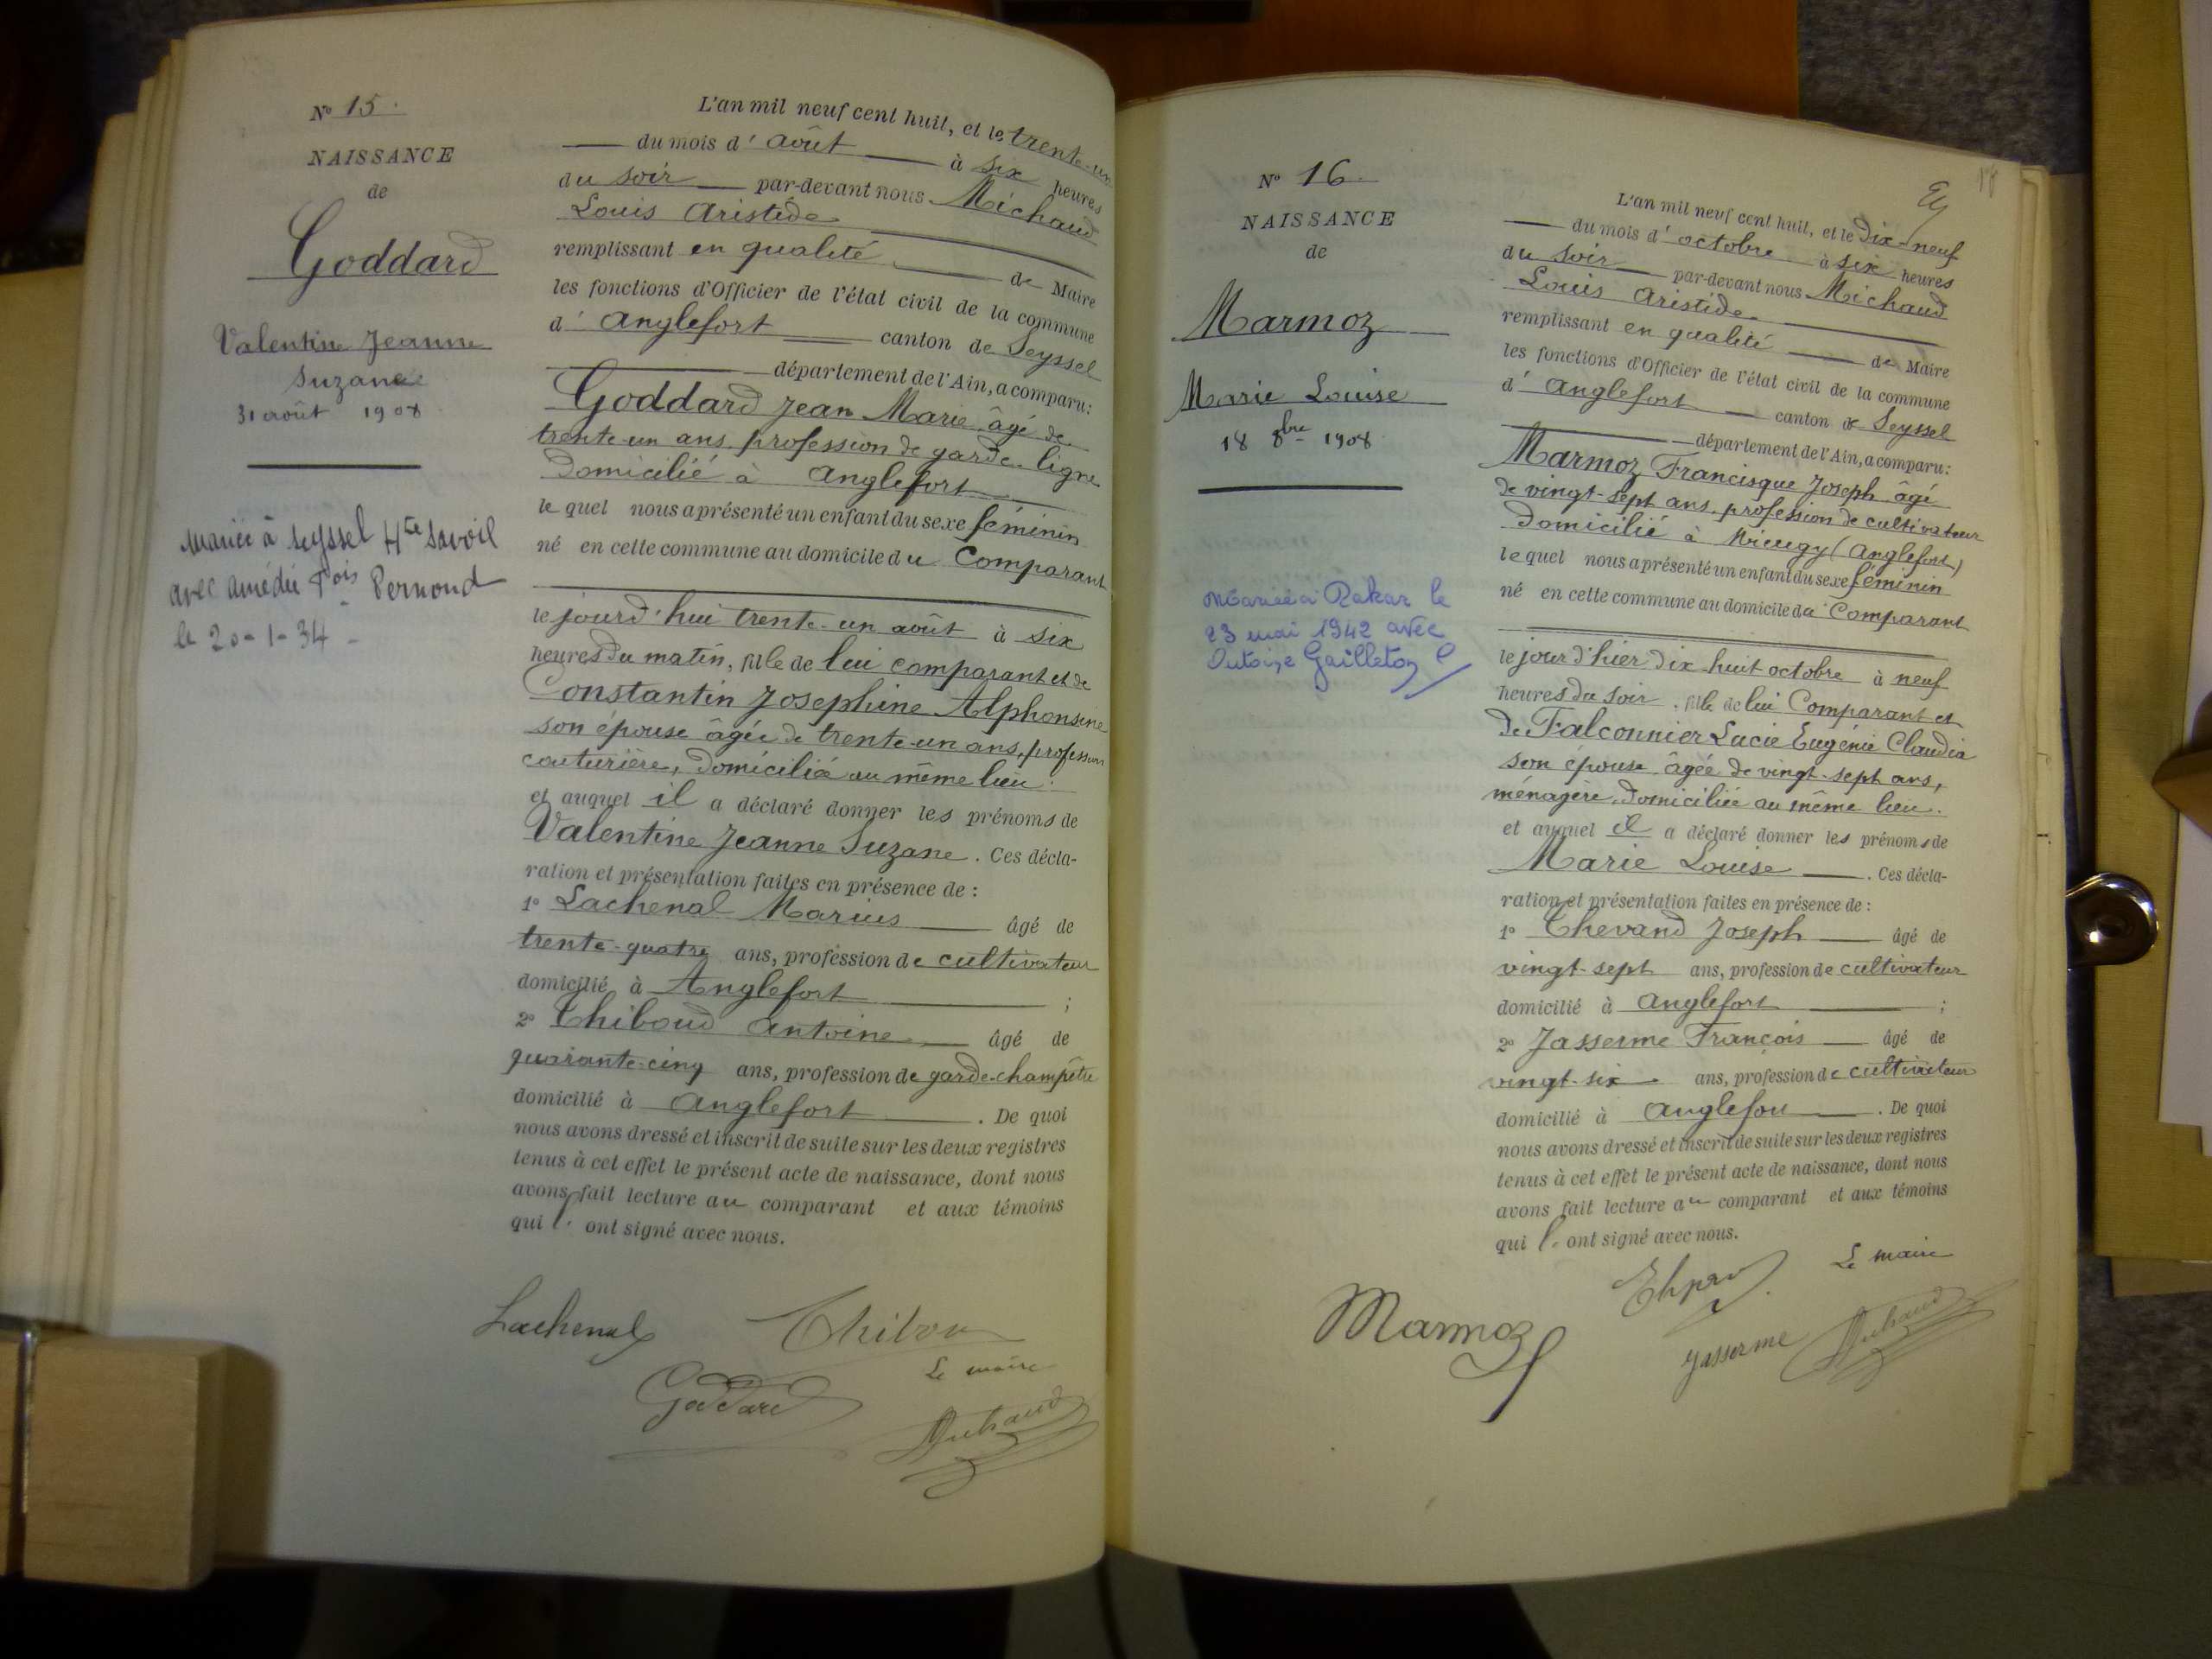 N° 15.
NAISSANCE
de
Goddard
Valentine Jeanne
Suzane
31 août 1908
Mariée à Seyssel Hte Savoie
avec Amédée Fois Pernoud
le 20-1-34 -
L'an mil neuf cent huit, et le trente-un
du mois d'août à six heures
du soir par-devant nous Michaud
Louis Aristide
remplissant en qualité de Maire
les fonctions d'Officier de l'état civil de la commune
d'Anglefort canton de Seyssel
département de l'Ain, a comparu:
Goddard Jean Marie âgé de
trente-un ans, profession de garde-ligne
domicilié à Anglefort
lequel nous a présenté un enfant du sexe féminin
né en cette commune au domicile du Comparant
le jourd'hui trente-un août à six
heures du matin, fille de lui comparant et de
Constantin Josephine Alphonsine
son épouse âgée de trente-un ans, profession
couturière, domiciliée au même lieu.
et auquel il a déclaré donner les prénoms de
Valentine Jeanne Suzane. Ces décla-
ration et présentation faites en présence de :
1° Lachenal Marius âgé de
trente-quatre ans, profession de cultivateur
domicilié à Anglefort ;
2° Thiboud Antoine âgé de
quarante-cinq ans, profession de garde-champêtre
domicilié à Anglefort. De quoi
nous avons dressé et inscrit de suite sur les deux registres
tenus à cet effet le présent acte de naissance, dont nous
avons fait lecture au comparant et aux témoins
qui l'ont signé avec nous.
Lachenal
Goddard
Le maire
18
N° 16.
NAISSANCE
de
Marmoz
Marie Louise
18 8bre 1908
Mariée à Dakar le
23 mai 1942 avec
Antoine Gailleton
L'an mil neuf cent huit, et le dix-neuf
du mois d'octobre à six heures
du soir par-devant nous Michaud
Louis Aristide
remplissant en qualité de Maire
les fonctions d'Officier de l'état civil de la commune
d'Anglefort canton de Seyssel
département de l'Ain, a comparu:
Marmoz Francisque Joseph âgé
de vingt-sept ans, profession de cultivateur
domicilié à (Anglefort)
lequel nous a présenté un enfant du sexe féminin
né en cette commune au domicile du Comparant
le jour d'hier dix-huit octobre à neuf
heures du soir, fille de lui Comparant et
de Falconnier Lucie Eugénie Claudia
son épouse âgée de vingt-sept ans,
ménagère, domiciliée au même lieu.
et auquel il a déclaré donner les prénoms de
Marie Louise. Ces décla-
ration et présentation faites en présence de :
1° Thevand Joseph âgé de
vingt-sept ans, profession de cultivateur
domicilié à Anglefort ;
2° Jasserme François âgé de
vingt-six ans, profession de cultivateur
domicilié à Anglefort. De quoi
nous avons dressé et inscrit de suite sur les deux registres
tenus à cet effet le présent acte de naissance, dont nous
avons fait lecture au comparant et aux témoins
qui l'ont signé avec nous.
Le maire
Marmoz
Jasserme